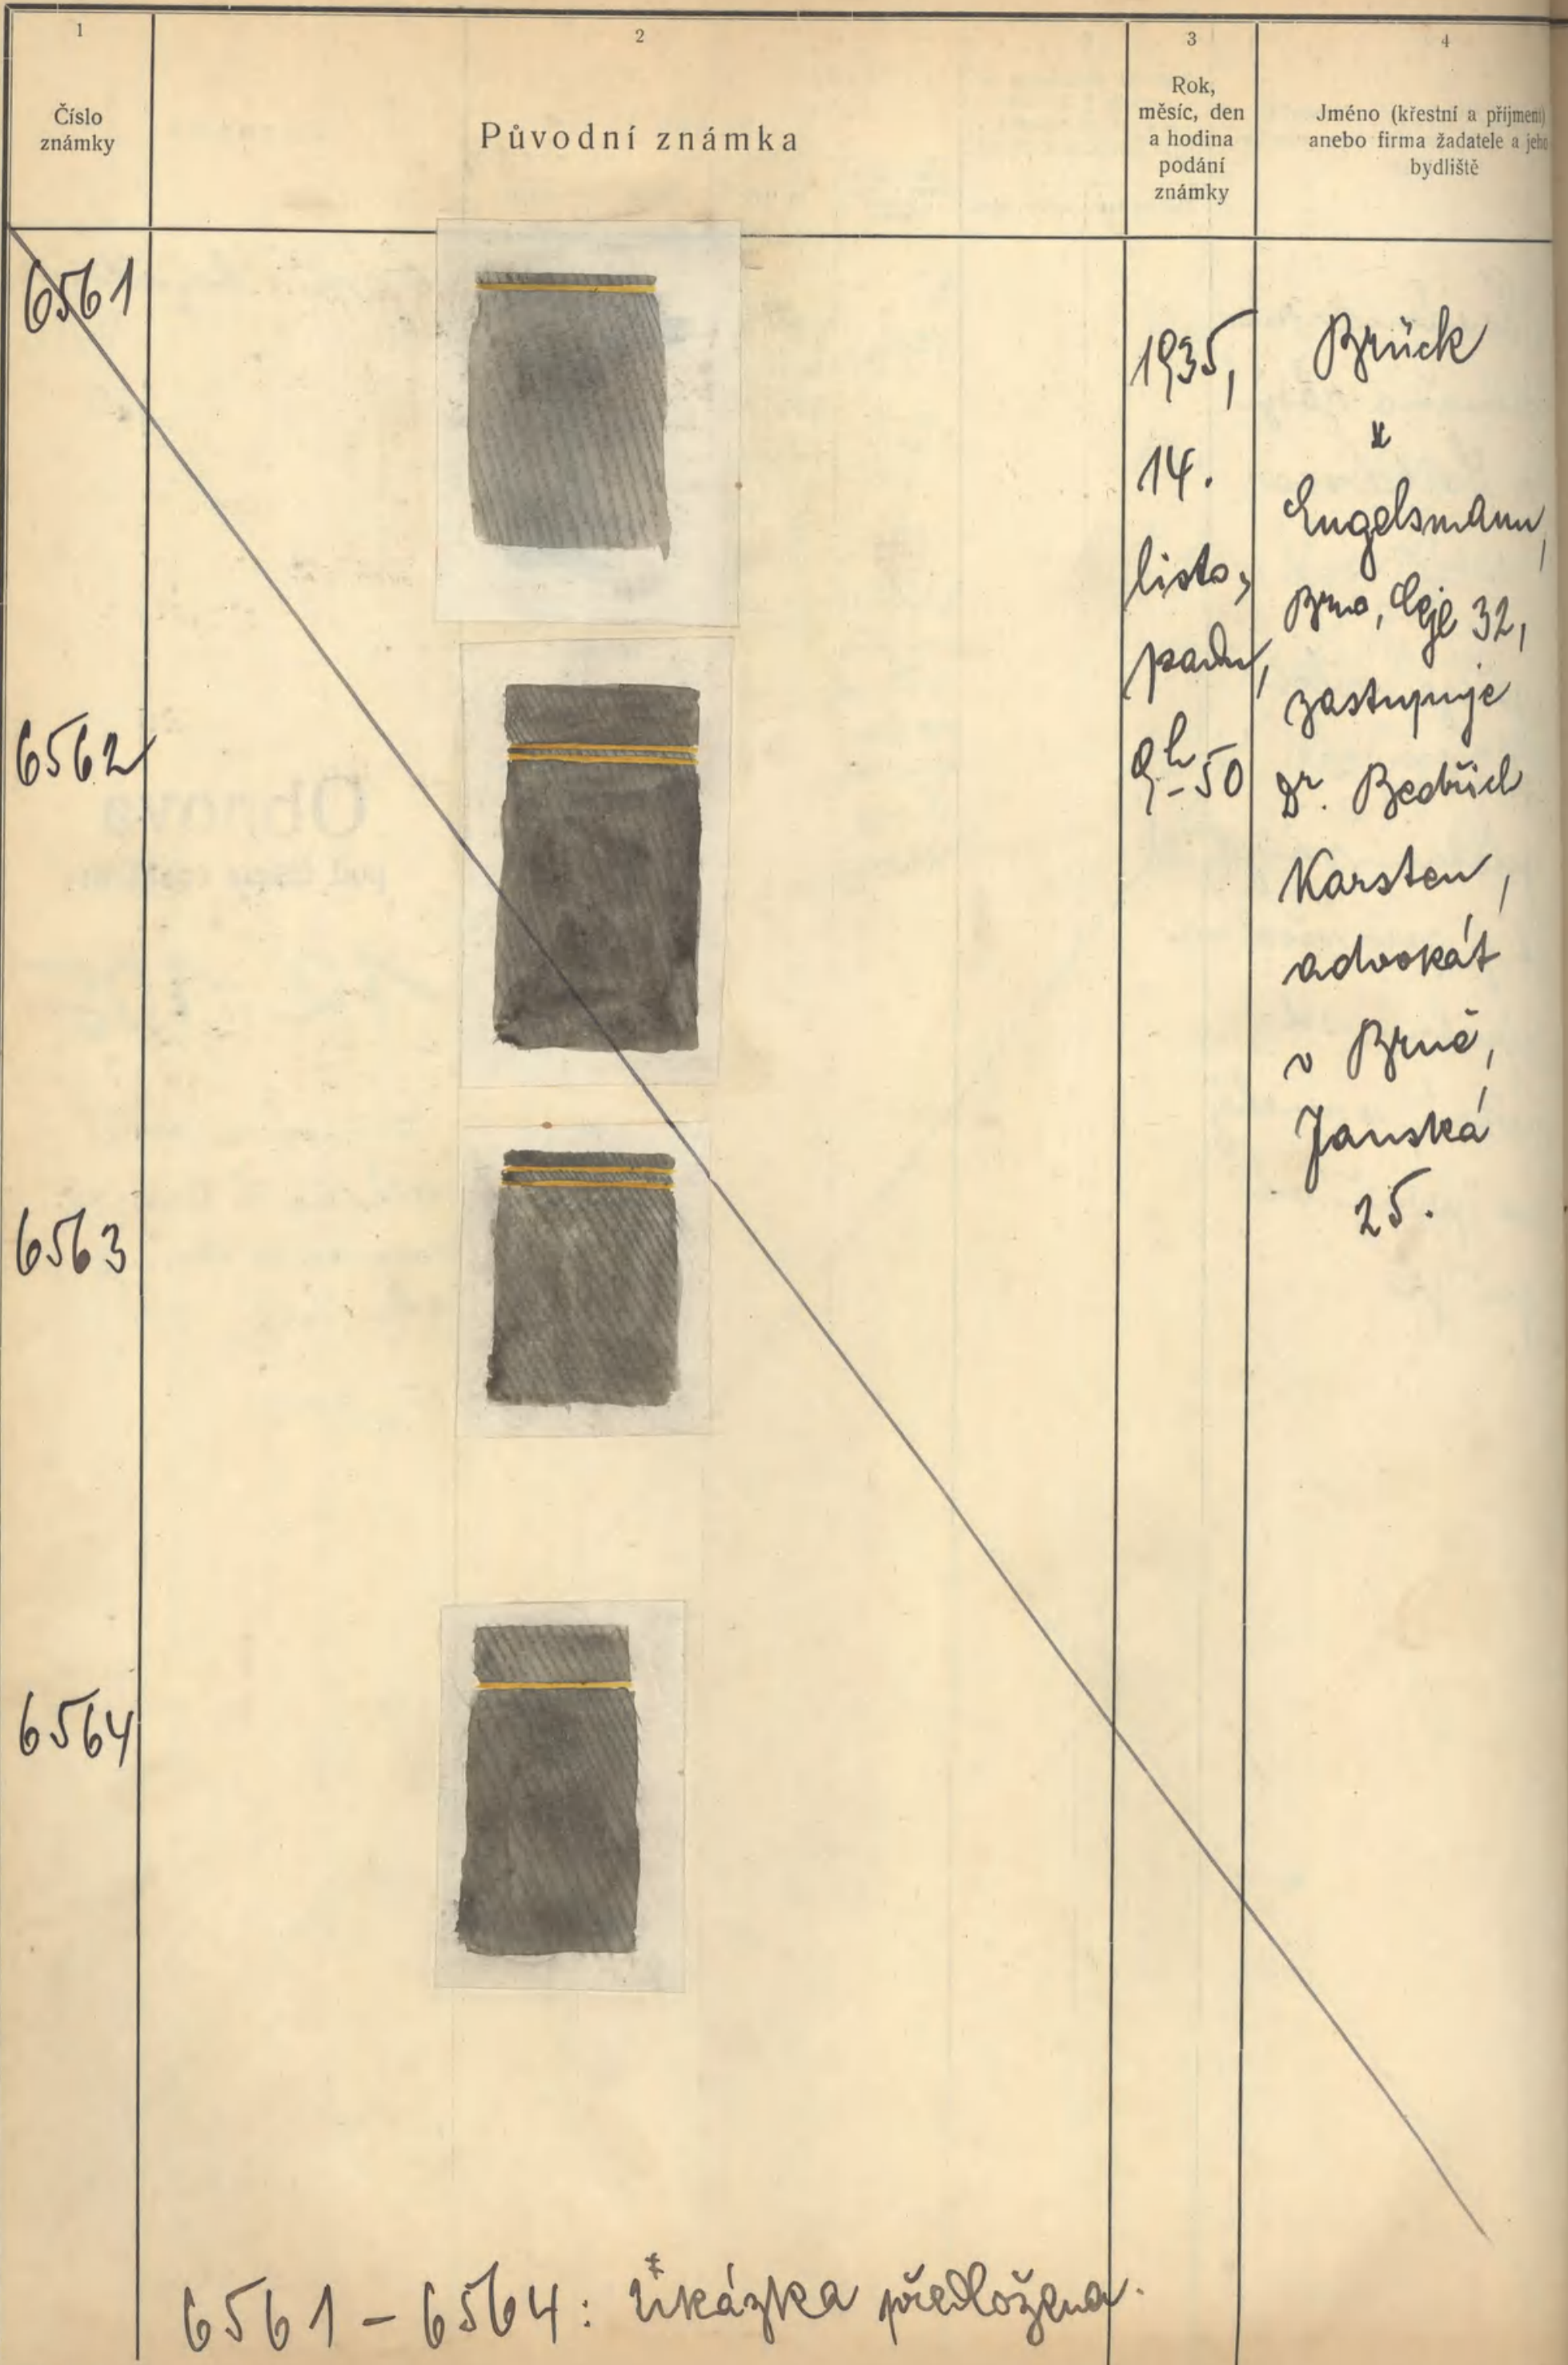 1
Číslo
známky
2
Původní známka
3
Rok,
měsíc, den
a hodina
podání
známky
4
Jméno (křestní a příjmení)
anebo firma žadatele a jeho
bydliště
6561
6562
6563
6564
1935,
14.
listo-
padu,
9h-50
Brück
&
Engelsmann,
Brno, Cejl 32,
zastupuje
Dr. Bedřich
Karsten,
advokát
v Brně,
Janská
25.
6561 - 6564: Ukázka předložena.